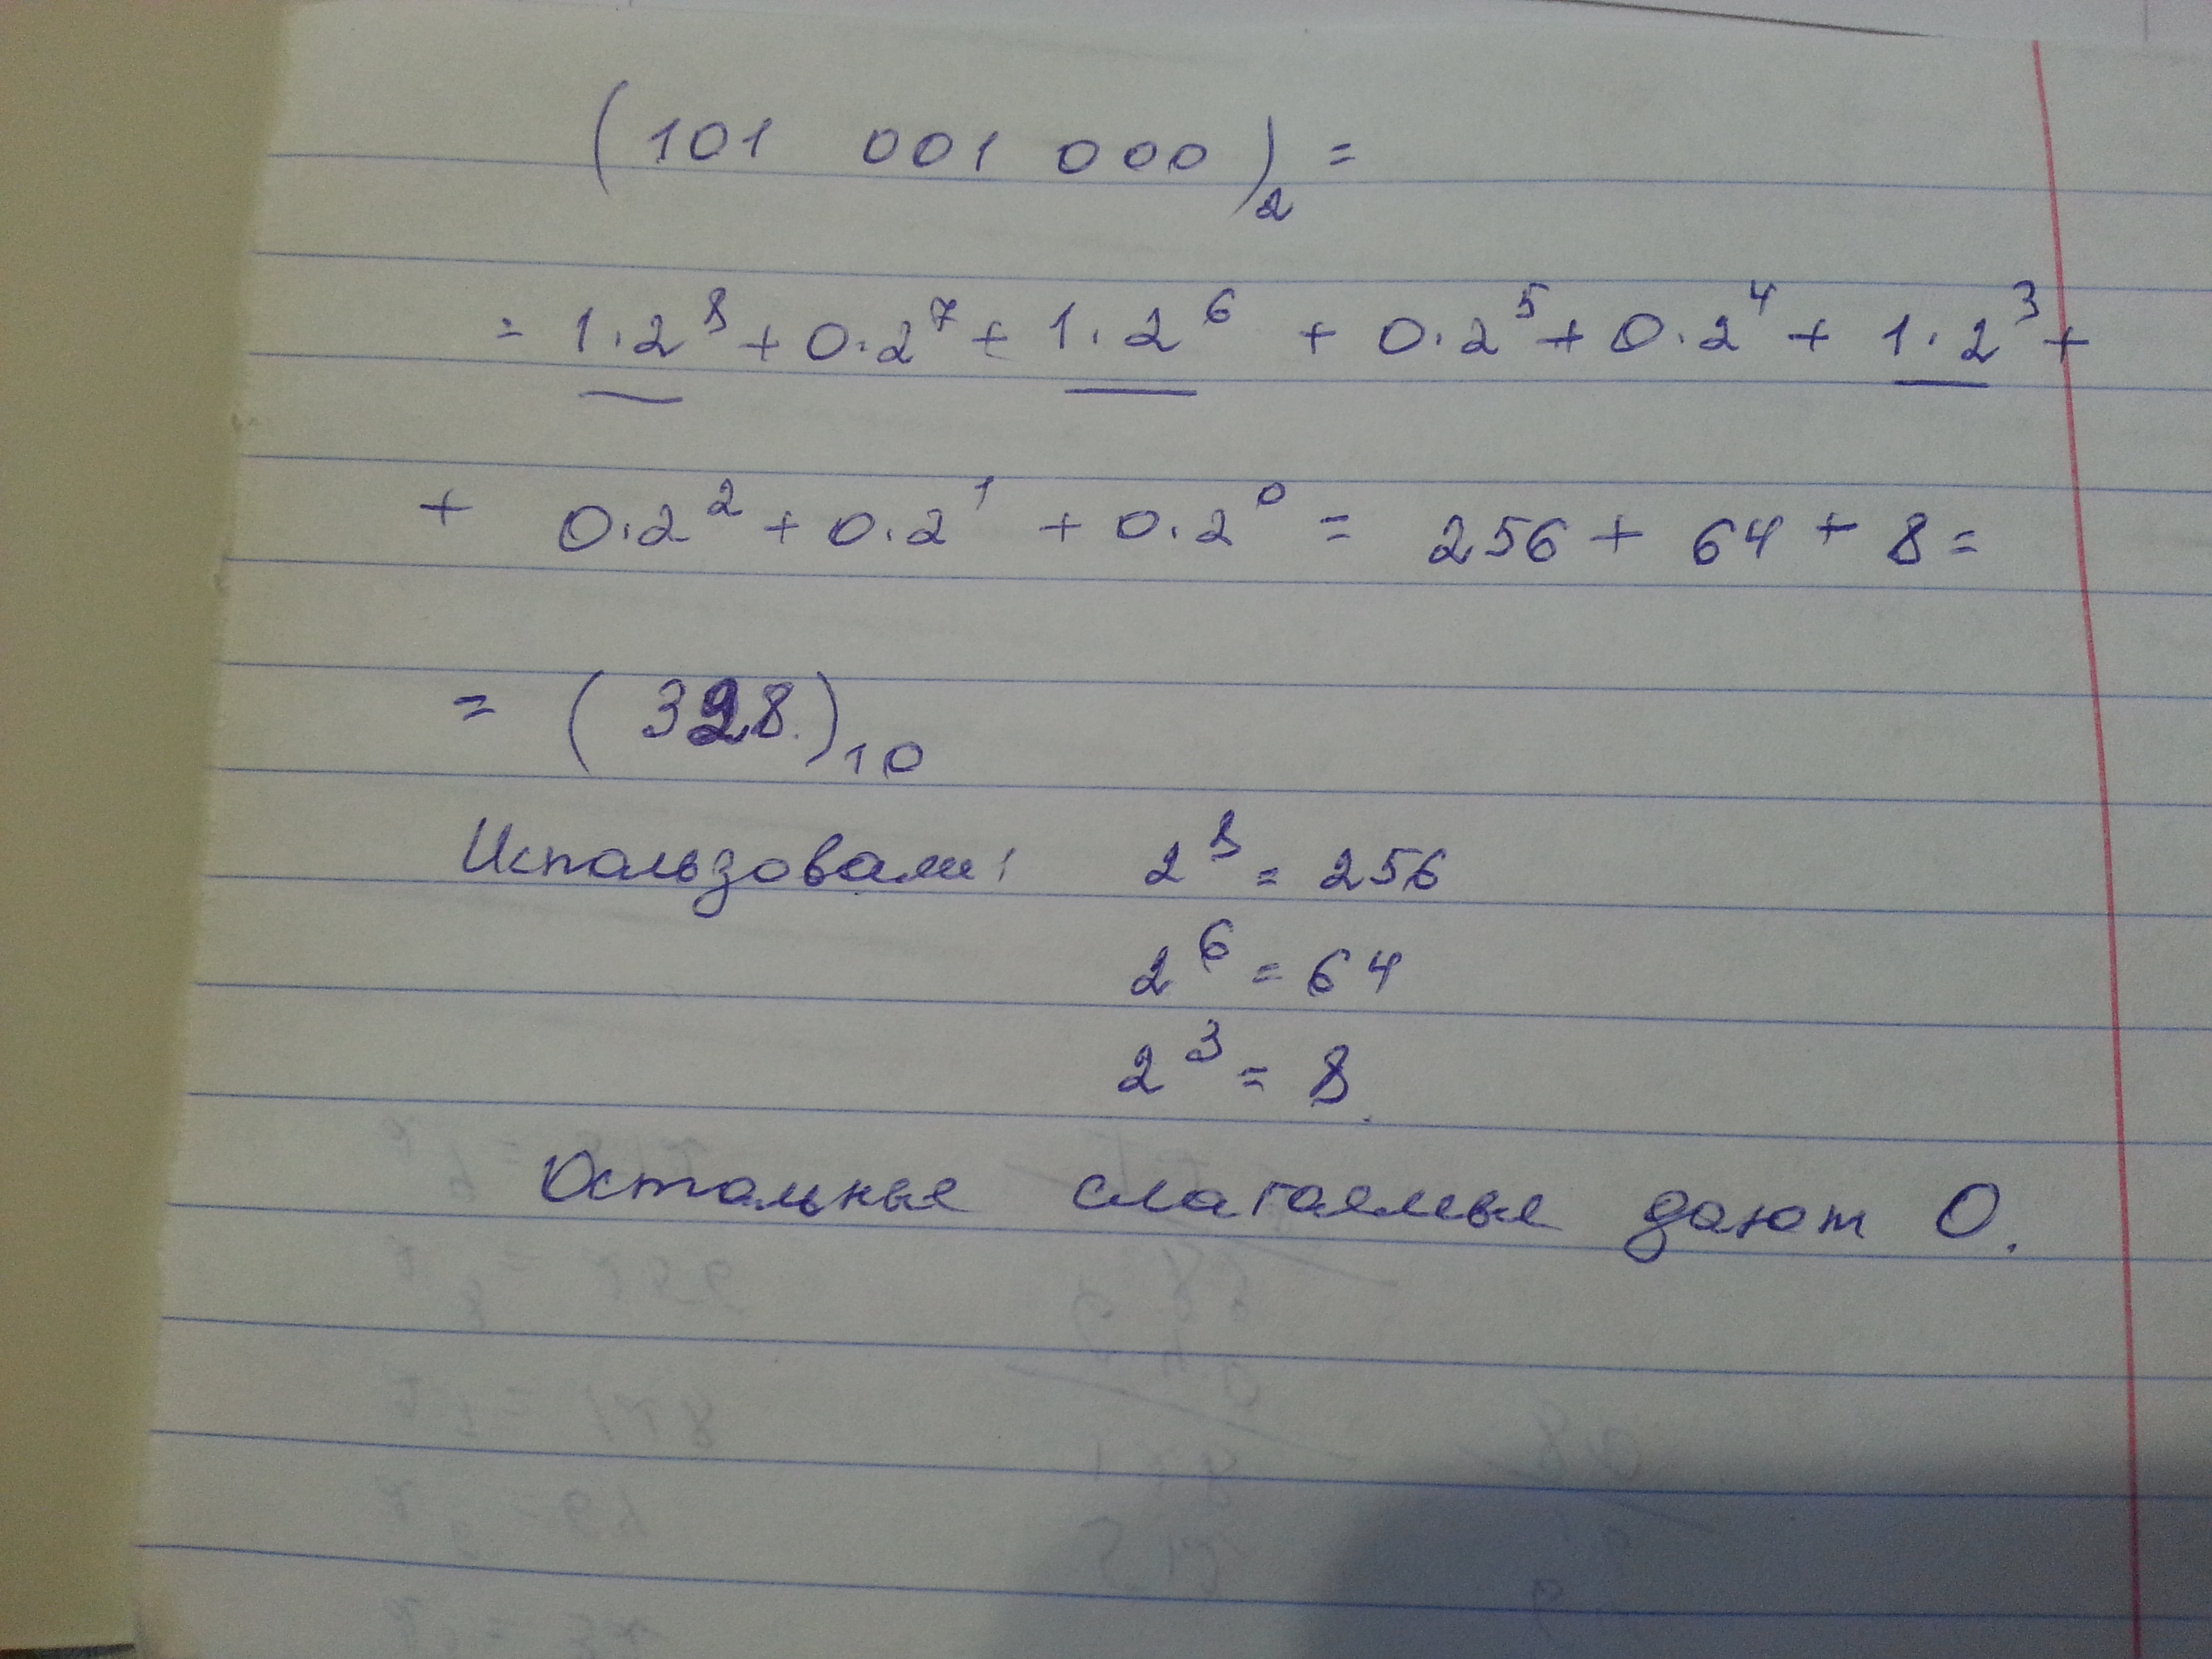 (101 001 000)₂ =
= 1·2⁸ + 0·2⁷ + 1·2⁶ + 0·2⁵ + 0·2⁴ + 1·2³ +
+ 0·2² + 0·2¹ + 0·2⁰ = 256 + 64 + 8 =
= (328)₁₀
Использовали: 2⁸ = 256
2⁶ = 64
2³ = 8.
Остальные слагаемые дают 0.